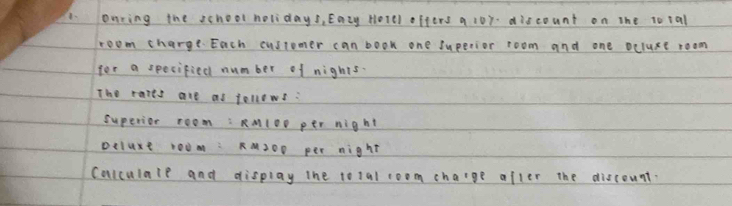 1. During the school holidays, Eazy Hotel offers a 10% discount on the total
room charge. Each customer can book one superior room and one Deluxe room
for a specified number of nights.
The rates are as follows:
Superior room : RM100 per night
Deluxe room : RM200 per night
Calculate and display the total room charge after the discount.